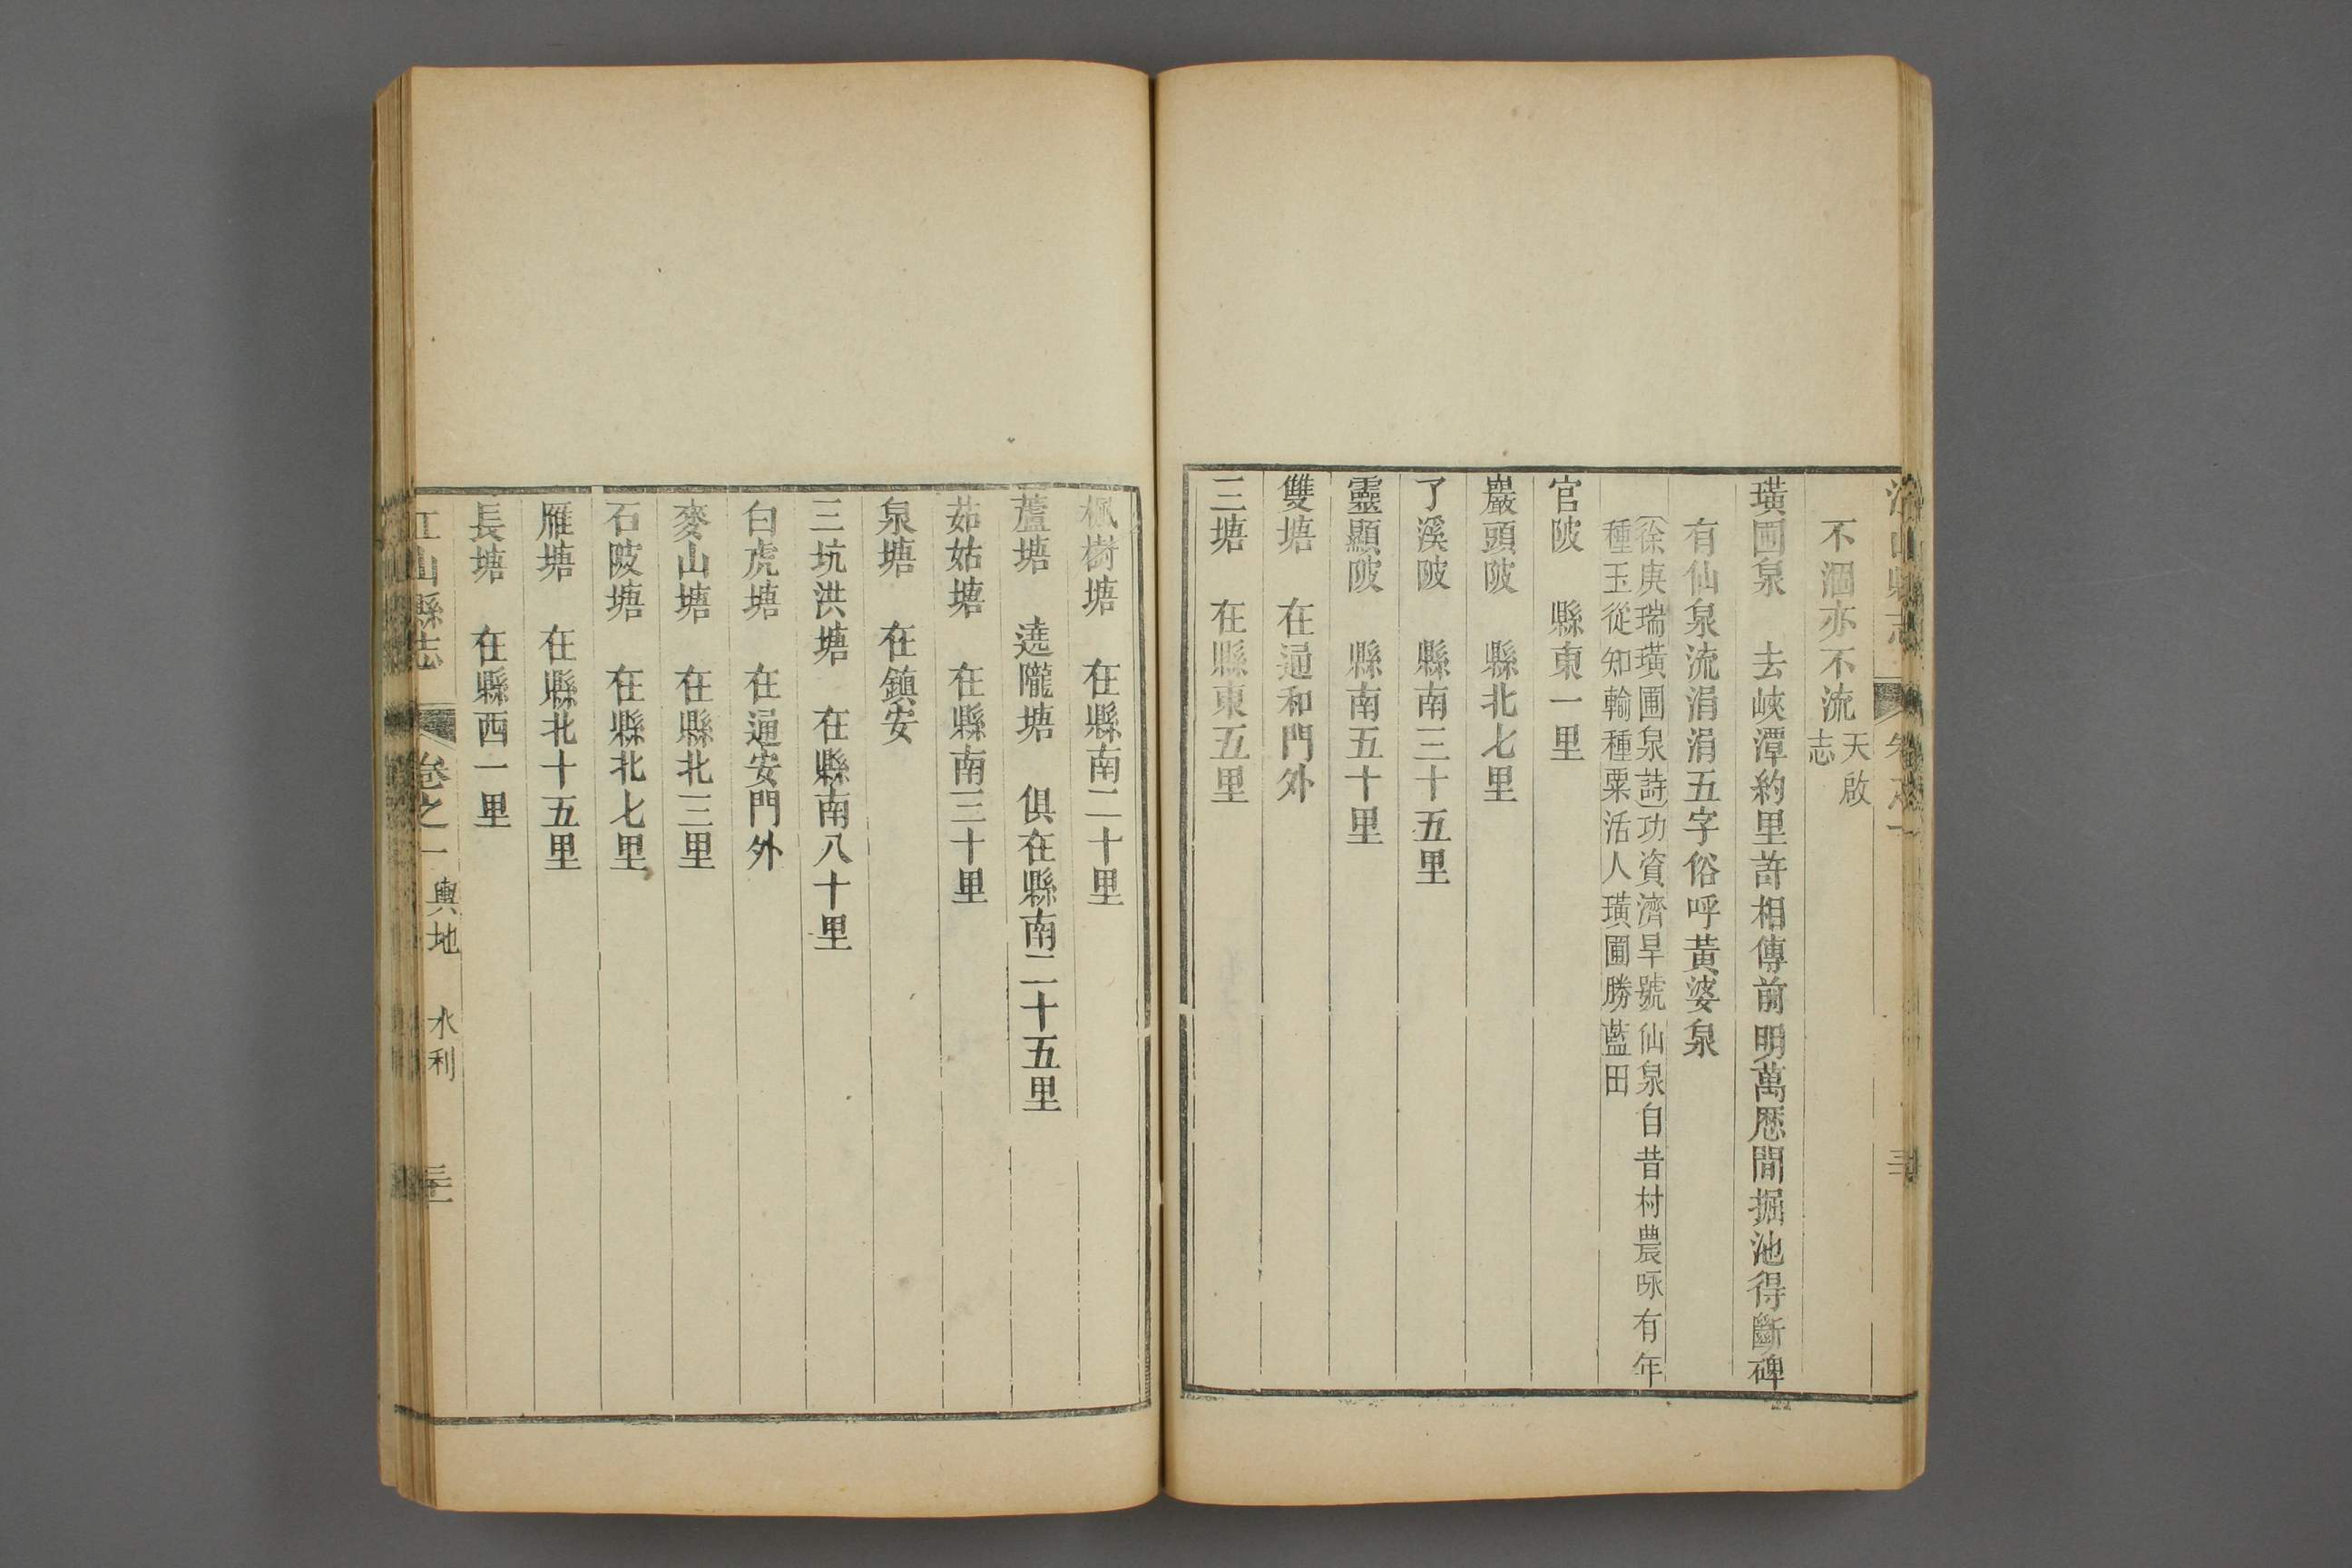 不涸亦不流天啟志
璜圃泉　去峽潭約里許相傳前明萬厯間掘池得斷碑
有仙泉流涓涓五字俗呼黃婆泉
徐庚瑞璜圃泉詩功資濟旱號仙泉自昔村農咏有年
種玉從知輸種粟活人璜圃勝藍田
官陂　縣東一里
巖頭陂　縣北七里
了溪陂　縣南三十五里
靈顯陂　縣南五十里
雙塘　在通和門外
三塘　在縣東五里
楓樹塘　在縣南二十里
蘆塘　遶隴塘　俱在縣南二十五里
茹姑塘　在縣南三十里
泉塘　在鎮安
三坑洪塘　在縣南八十里
白虎塘　在通安門外
麥山塘　在縣北三里
石陂塘　在縣北七里
雁塘　在縣北十五里
長塘　在縣西一里
江山縣志　卷之一　輿地　水利